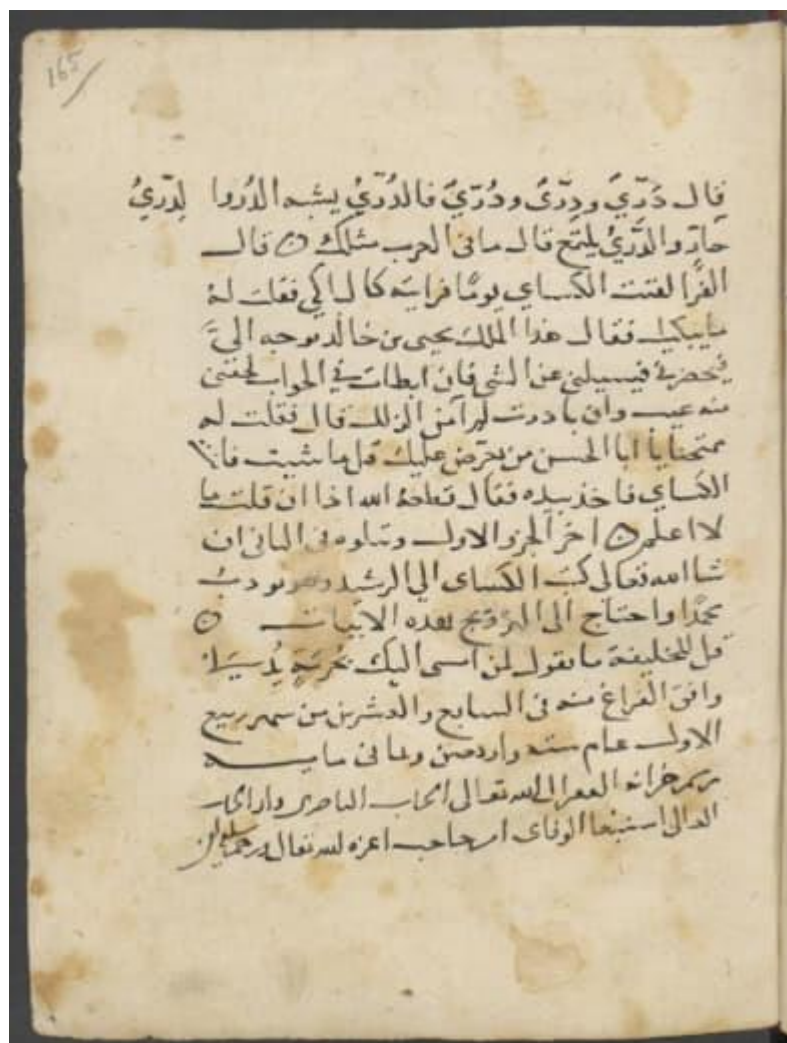 165
قال دَرّيٌ ودِرّىٌ ودُرّيٌ فالدُرّيُ يشبه الدُروا لدِرّيُ
جارٍ والدَّرّيُ يلتمع قال ما فى العرب مثلك ۞ قال
الفرّا لقيت الكساى يومًا فرايته كالباكى فقلت لهُ
ما يبكيك فقال هذا الملك يحيى بن خالد يوجه اليَّ
فيحضرنى فيسيلنى عن الشى فان ابطات فى الجواب لحقنى
منه عيب وان بادرت لم آمن الزلل قال فقلت له
ممتحنا يا ابا الحسن من يعترض عليك قل ما شيت فانت
الكساى فاخذ بيده فقال قطعهُ الله اذا ان قلت ما
لا اعلم ۞ اخر الجزو الاول ويتلوه فى الثانى ان
شا الله تعالى كتب الكساى الي الرشيد وهو يودب
محمدًا واحتاج الى التزويج بهذه الابيات ۞
قل للخليفة ما تقول لمن امسى اليك بحُرمَةٍ يُدلى
وافق الفراغ منه فى السابع والعشرين من شهر ربيع
الاول عام سته واربعين وثمانى مايه
برسم خزانه الفقير الى الله تعالى الجناب الناصرى
العالى اعزه الله تعالى